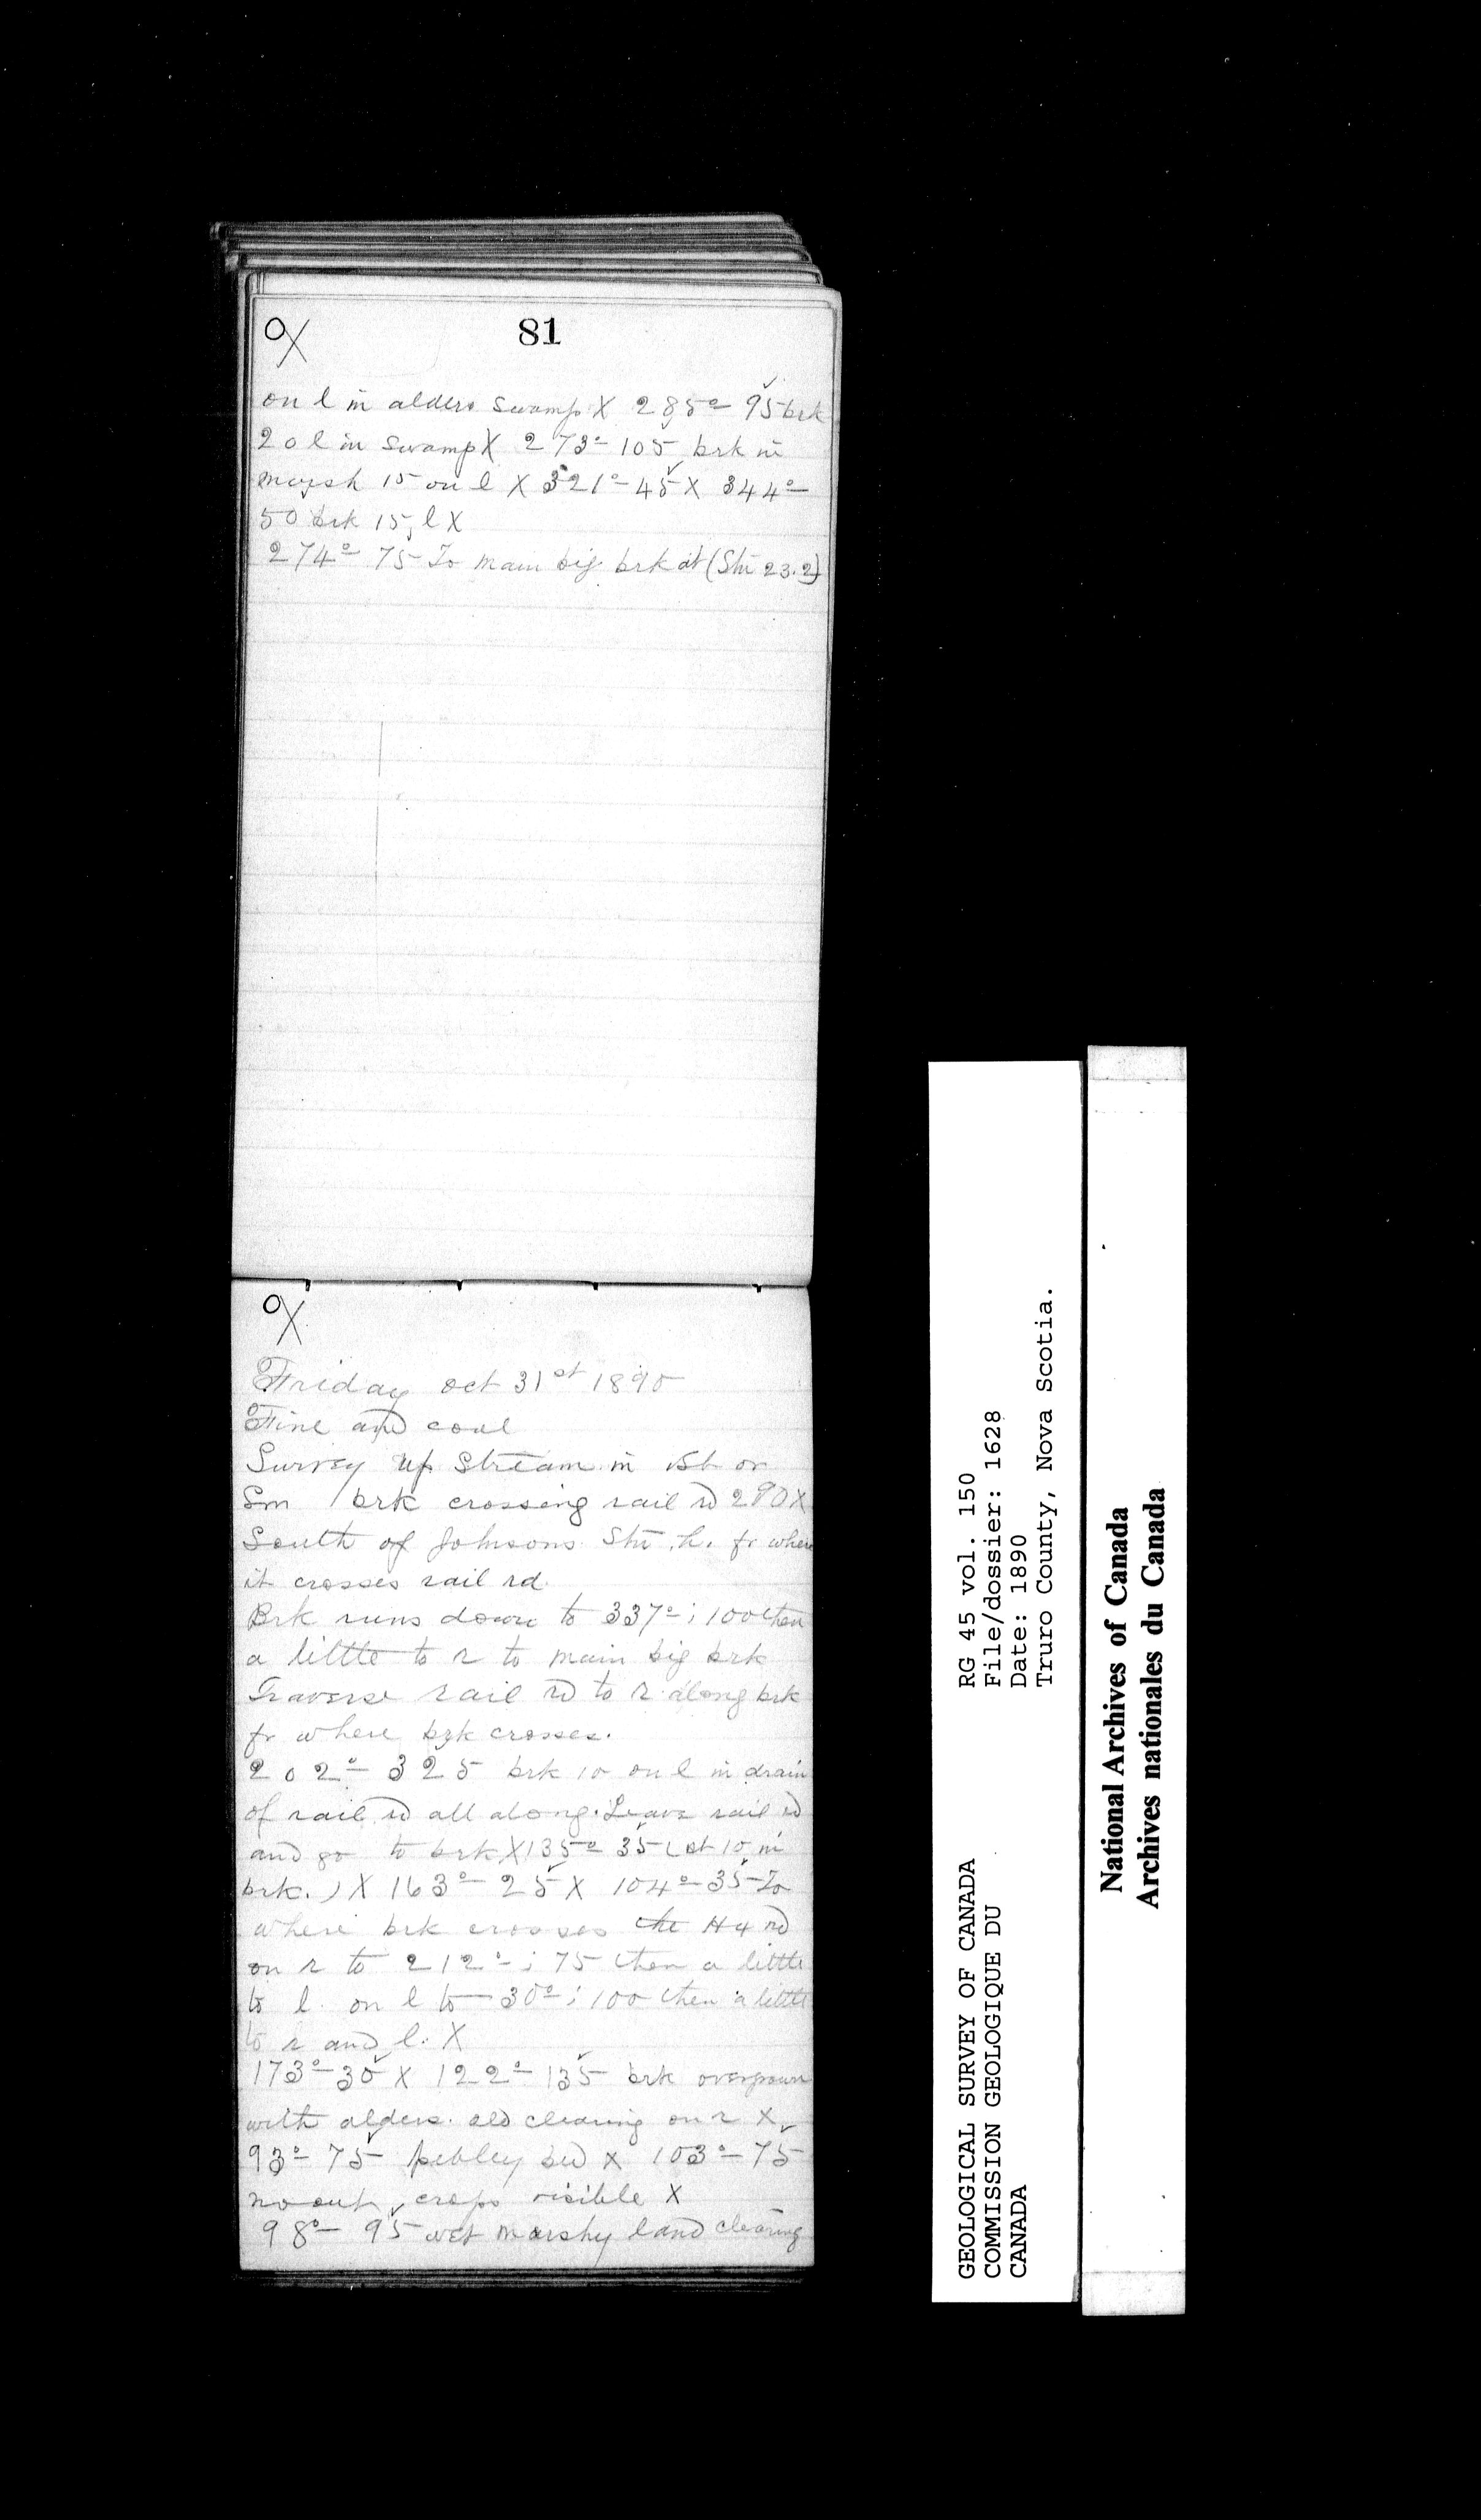 81
on l in alders swamp X 285° 95 brk
20 l in swamp X 273° 105 brk in
marsh 15 on l X 321° 45 X 344°
50 brk 15 l X
274° 75 To main big brk at (Stn 23.2)
Friday oct 31st 1890
Fine and cool
Survey up stream in or
Sm brk crossing rail rd 290 X
South of Johnsons Stn . fr where
it crosses rail rd.
Brk runs down to 337° ; 100 then
a little to r to main big brk
Traverse rail rd to r along brk
fr where brk crosses.
202° 325 brk 10 on l in drain
of rail rd all along. Leave rail rd
and go to brk X 135° 35 (at 10 in
brk.) X 163° 25 X 104° 35 To
where brk crosses the H4 rd
on r to 212° ; 75 then a little
to l. on l to 30° ; 100 then a little
to r and l. X
173° 30 X 122° 135 brk overgrown
with alders. old clearing on r X
93° 75 pebley bed X 103° 75
no out crops visible X
98° 95 wet marshy land clearing
GEOLOGICAL SURVEY OF CANADA
COMMISSION GEOLOGIQUE DU
CANADA
RG 45 vol. 150
File/dossier: 1628
Date: 1890
Truro County, Nova Scotia.
National Archives of Canada
Archives nationales du Canada